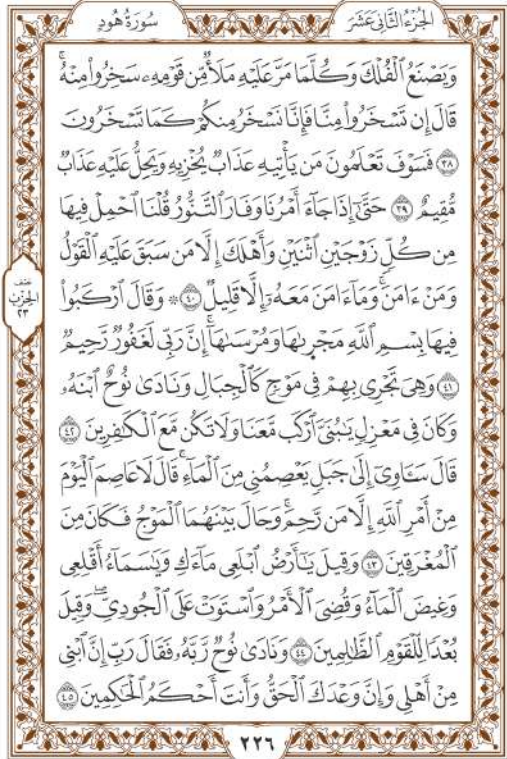 الجُزْءُ الثَّانِي عَشَرَ
سُورَةُ هُودٍ
وَيَصْنَعُ ٱلْفُلْكَ وَكُلَّمَا مَرَّ عَلَيْهِ مَلَأٌ مِّن قَوْمِهِۦ سَخِرُوا۟ مِنْهُ ۚ
قَالَ إِن تَسْخَرُوا۟ مِنَّا فَإِنَّا نَسْخَرُ مِنكُمْ كَمَا تَسْخَرُونَ
٣٨ فَسَوْفَ تَعْلَمُونَ مَن يَأْتِيهِ عَذَابٌ يُخْزِيهِ وَيَحِلُّ عَلَيْهِ عَذَابٌ
مُّقِيمٌ ٣٩ حَتَّىٰٓ إِذَا جَآءَ أَمْرُنَا وَفَارَ ٱلتَّنُّورُ قُلْنَا ٱحْمِلْ فِيهَا
مِن كُلٍّ زَوْجَيْنِ ٱثْنَيْنِ وَأَهْلَكَ إِلَّا مَن سَبَقَ عَلَيْهِ ٱلْقَوْلُ
وَمَنْ ءَامَنَ ۚ وَمَآ ءَامَنَ مَعَهُۥٓ إِلَّا قَلِيلٌ ٤٠ ۞ وَقَالَ ٱرْكَبُوا۟
فِيهَا بِسْمِ ٱللَّهِ مَجْر۪ىٰهَا وَمُرْسَىٰهَآ ۚ إِنَّ رَبِّى لَغَفُورٌ رَّحِيمٌ
٤١ وَهِىَ تَجْرِى بِهِمْ فِى مَوْجٍ كَٱلْجِبَالِ وَنَادَىٰ نُوحٌ ٱبْنَهُۥ
وَكَانَ فِى مَعْزِلٍ يَـٰبُنَىَّ ٱرْكَب مَّعَنَا وَلَا تَكُن مَّعَ ٱلْكَـٰفِرِينَ ٤٢
قَالَ سَـَٔاوِىٓ إِلَىٰ جَبَلٍ يَعْصِمُنِى مِنَ ٱلْمَآءِ ۚ قَالَ لَا عَاصِمَ ٱلْيَوْمَ
مِنْ أَمْرِ ٱللَّهِ إِلَّا مَن رَّحِمَ ۚ وَحَالَ بَيْنَهُمَا ٱلْمَوْجُ فَكَانَ مِنَ
ٱلْمُغْرَقِينَ ٤٣ وَقِيلَ يَـٰٓأَرْضُ ٱبْلَعِى مَآءَكِ وَيَـٰسَمَآءُ أَقْلِعِى
وَغِيضَ ٱلْمَآءُ وَقُضِىَ ٱلْأَمْرُ وَٱسْتَوَتْ عَلَى ٱلْجُودِىِّ ۖ وَقِيلَ
بُعْدًا لِّلْقَوْمِ ٱلظَّـٰلِمِينَ ٤٤ وَنَادَىٰ نُوحٌ رَّبَّهُۥ فَقَالَ رَبِّ إِنَّ ٱبْنِى
مِنْ أَهْلِى وَإِنَّ وَعْدَكَ ٱلْحَقُّ وَأَنتَ أَحْكَمُ ٱلْحَـٰكِمِينَ ٤٥
نصف
الحِزْبِ
٢٣
٢٢٦